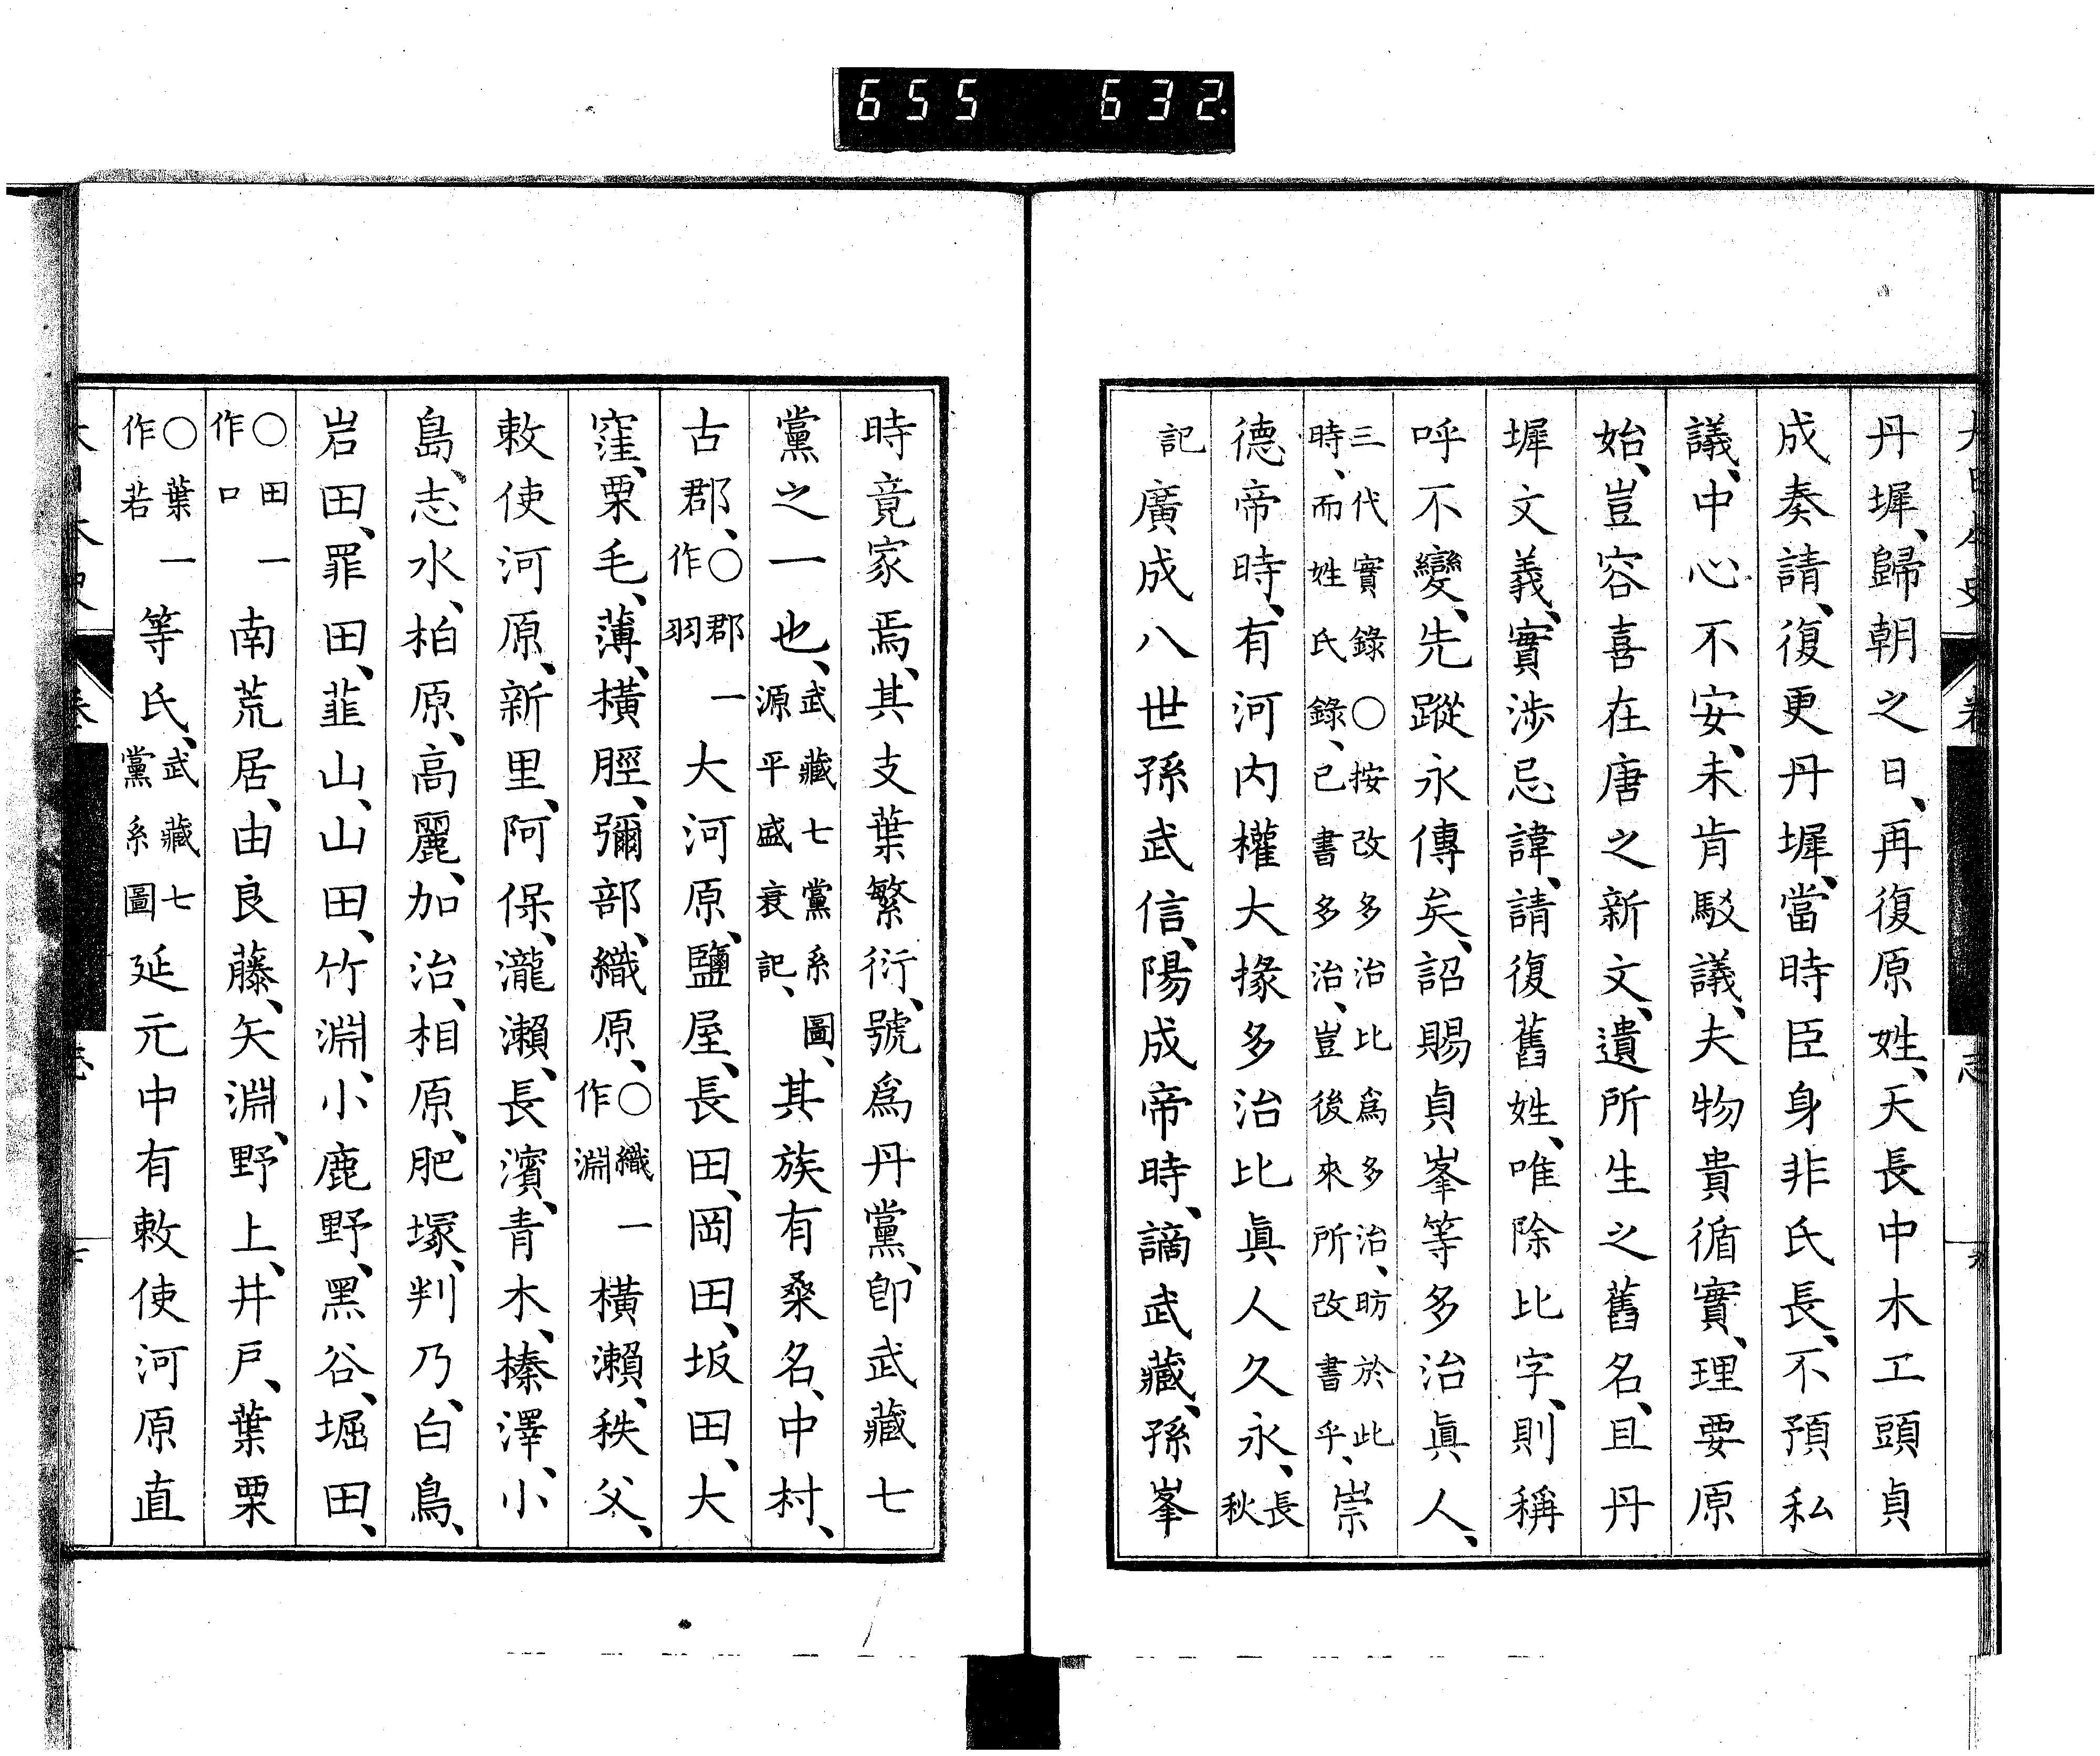 655 632.
丹墀、歸朝之日、再復原姓、天長中木工頭貞
成奏請、復更丹墀、當時臣身非氏長、不預私
議、中心不安、未肯駁議、夫物貴循實、理要原
始、豈容喜在唐之新文、遺所生之舊名、且丹
墀文義、實涉忌諱、請復舊姓、唯除比字、則稱
呼不變、先蹤永傳矣、詔賜貞峯等多治眞人、
三代實錄○按改多治比爲多治、昉於此
時、而姓氏錄、已書多治、豈後來所改書乎、崇
德帝時、有河内權大掾多治比眞人久永、長秋
記廣成八世孫武信、陽成帝時、謫武藏、孫峯
時竟家焉、其支葉繁衍、號爲丹黨、卽武藏七
黨之一也、武藏七黨系圖、源平盛衰記、其族有桑名、中村、
古郡、○郡一作羽大河原、鹽屋、長田、岡田、坂田、大
窪、栗毛、薄、橫脛、彌部、織原、○織一作淵橫瀨、秩父、
敕使河原、新里、阿保、瀧瀨、長濱、青木、榛澤、小
島、志水、柏原、高麗、加治、相原、肥塚、判乃、白鳥、
岩田、罪田、韮山、山田、竹淵、小鹿野、黑谷、堀田、
○田一作口南荒居、由良藤、矢淵、野上、井戸、葉栗
○葉一作若等氏、武藏七黨系圖延元中有敕使河原直